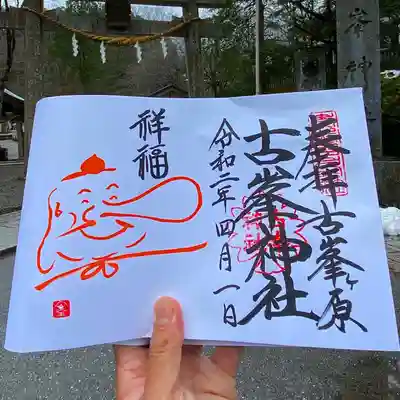 奉拝 古峯ヶ原
古峯神社
令和二年四月一日
祥福
峯神